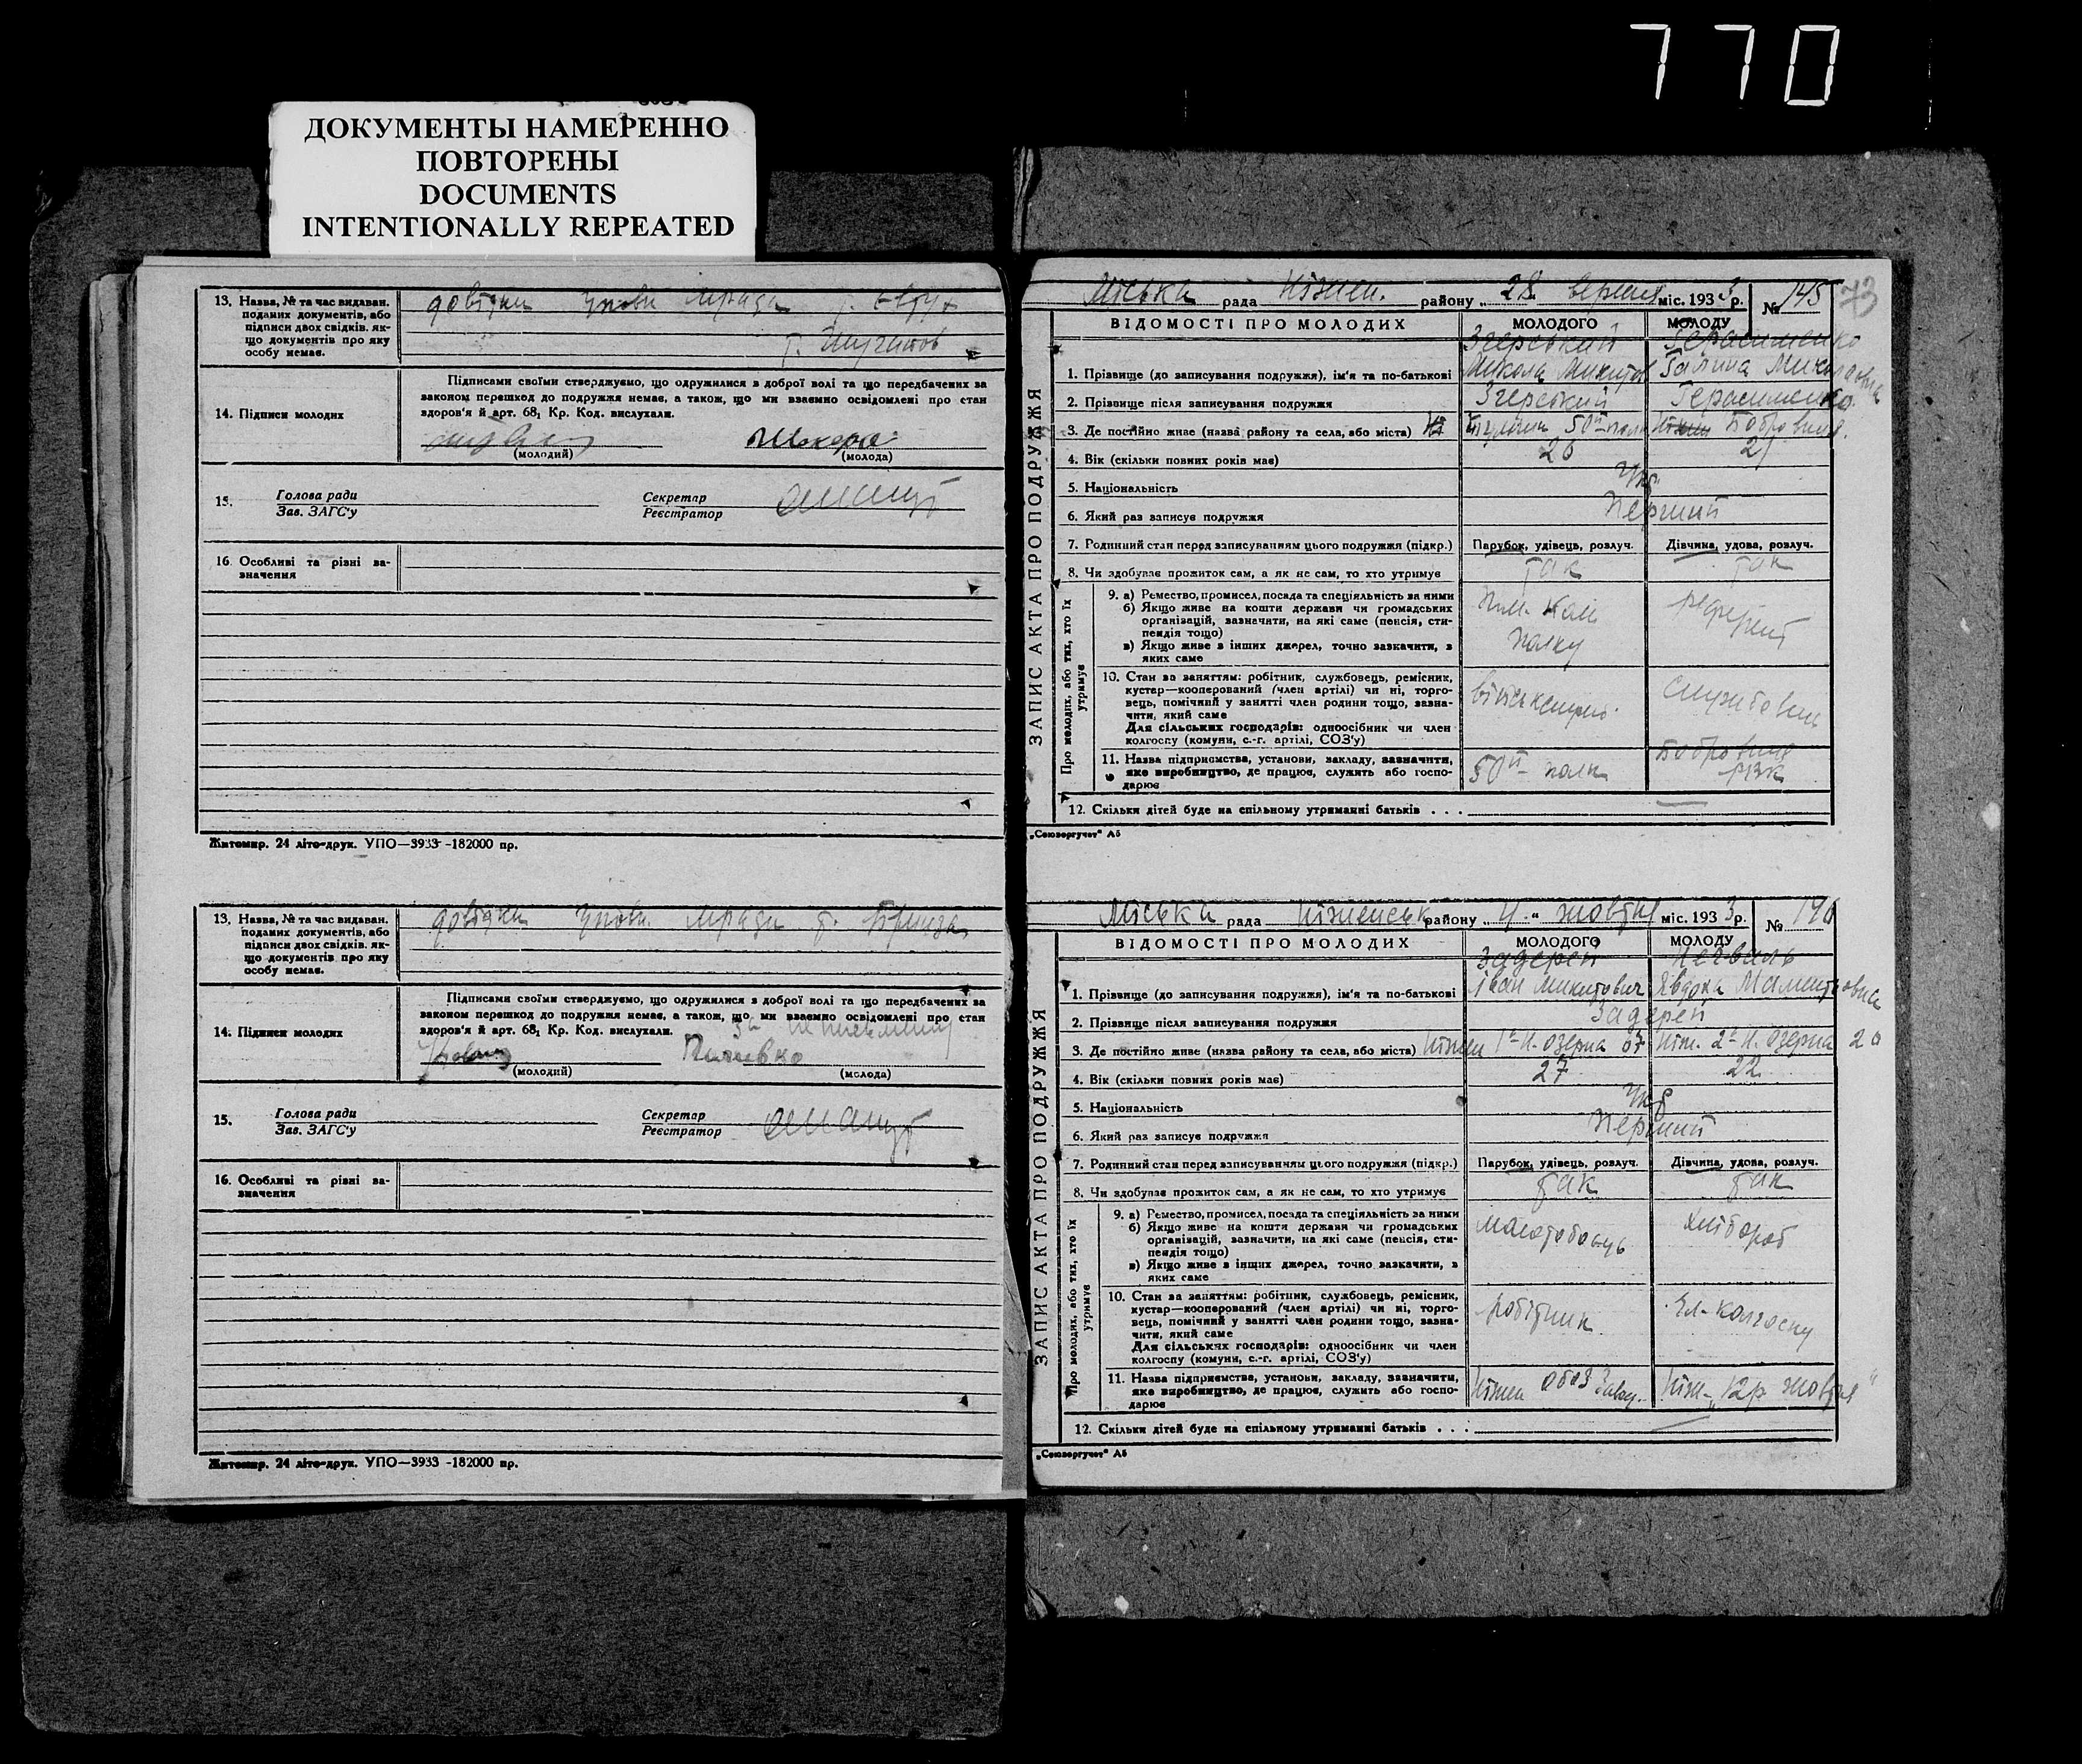 770
ДОКУМЕНТЫ НАМЕРЕННО
ПОВТОРЕНЫ
DOCUMENTS
INTENTIONALLY REPEATED
13. Назва, № та час видаван. поданих документів, або підписи двох свідків, якщо документів про яку особу немає.
довідки
14. Підписи молодих
Підписами своїми стверджуємо, що одружилися з доброї волі та що передбачених за
законом перешкод до подружжя немає, а також, що ми взаємно освідомлені про стан
здоров'я й арт. 68₁ Кр. Код. вислухали.
(молодий) (молода)
15. Голова ради
Зав. ЗАГС'у
Секретар
Реєстратор
16. Особливі та різні зазначення
Житомир. 24 літо-друк. УПО—3933 -182000 пр.
13. Назва, № та час видаван. поданих документів, або підписи двох свідків, якщо документів про яку особу немає.
довідки
14. Підписи молодих
Підписами своїми стверджуємо, що одружилися з доброї волі та що передбачених за
законом перешкод до подружжя немає, а також, що ми взаємно освідомлені про стан
здоров'я й арт. 68₁ Кр. Код. вислухали.
(молодий) (молода)
15. Голова ради
Зав. ЗАГС'у
Секретар
Реєстратор
16. Особливі та різні зазначення
Житомир. 24 літо-друк. УПО—3933 -182000 пр.
Міська рада Ніжен. району „28 вересня міс. 1933 р. № 145
73
ЗАПИС АКТА ПРО ПОДРУЖЖЯ
ВІДОМОСТІ ПРО МОЛОДИХ МОЛОДОГО МОЛОДУ
1. Прізвище (до записування подружжя), ім'я та по-батькові Згерський Микола Микитов Герасименко Галина Миколаєвна
2. Прізвище після записування подружжя Згерський Герасименко
3. Де постійно живе (назва району та села, або міста) 50й полк Бобровиця
4. Вік (скільки повних років має) 26 21
5. Національність Укр.
6. Який раз записує подружжя перший
7. Родинний стан перед записуванням цього подружжя (підкр.) Парубок, удівець, розлуч. Дівчина, удова, розлуч.
8. Чи здобуває прожиток сам, а як не сам, то хто утримує так так
Про молодих, або тих, хто їх утримує
9. а) Ремество, промисел, посада та спеціяльність за ними
б) Якщо живе на кошти держави чи громадських
організацій, зазначити, на які саме (пенсія, сти-
пендія тощо)
в) Якщо живе з інших джерел, точно зазначити, з
яких саме
полку референт
10. Стан за заняттям: робітник, службовець, ремісник,
кустар—кооперований (член артілі) чи ні, торго-
вець, помічний у занятті член родини тощо, зазна-
чити, який саме
Для сільських господарів: одноосібник чи член
колгоспу (комуни, с.-г. артілі, СОЗ'у)
військслужб. службовець
11. Назва підприємства, установи, закладу, зазначити,
яке виробництво, де працює, служить або госпо-
дарює
50й полк Бобровицьк РВК
12. Скільки дітей буде на спільному утриманні батьків . . .
„Союзоргучет" А5
Міська рада Ніженськ району „4" жовтня міс. 1933 р. № 146
ЗАПИС АКТА ПРО ПОДРУЖЖЯ
ВІДОМОСТІ ПРО МОЛОДИХ МОЛОДОГО МОЛОДУ
1. Прізвище (до записування подружжя), ім'я та по-батькові Задерей Іван Микитович Явдоха
2. Прізвище після записування подружжя Задерей
3. Де постійно живе (назва району та села, або міста) Ніжен 1а Н. Озерна 67 Ніж. 2а Н. Озерна 20
4. Вік (скільки повних років має) 27 22
5. Національність Укр
6. Який раз записує подружжя перший
7. Родинний стан перед записуванням цього подружжя (підкр.) Парубок, удівець, розлуч. Дівчина, удова, розлуч.
8. Чи здобуває прожиток сам, а як не сам, то хто утримує так так
Про молодих, або тих, хто їх утримує
9. а) Ремество, промисел, посада та спеціяльність за ними
б) Якщо живе на кошти держави чи громадських
організацій, зазначити, на які саме (пенсія, сти-
пендія тощо)
в) Якщо живе з інших джерел, точно зазначити, з
яких саме
молотобоєць хлібороб
10. Стан за заняттям: робітник, службовець, ремісник,
кустар—кооперований (член артілі) чи ні, торго-
вець, помічний у занятті член родини тощо, зазна-
чити, який саме
Для сільських господарів: одноосібник чи член
колгоспу (комуни, с.-г. артілі, СОЗ'у)
робітник чл. колгоспу
11. Назва підприємства, установи, закладу, зазначити,
яке виробництво, де працює, служить або госпо-
дарює
Ніжен Обоз Завод Ніж. „12 р. жовтня"
12. Скільки дітей буде на спільному утриманні батьків . . .
„Союзоргучет" А5